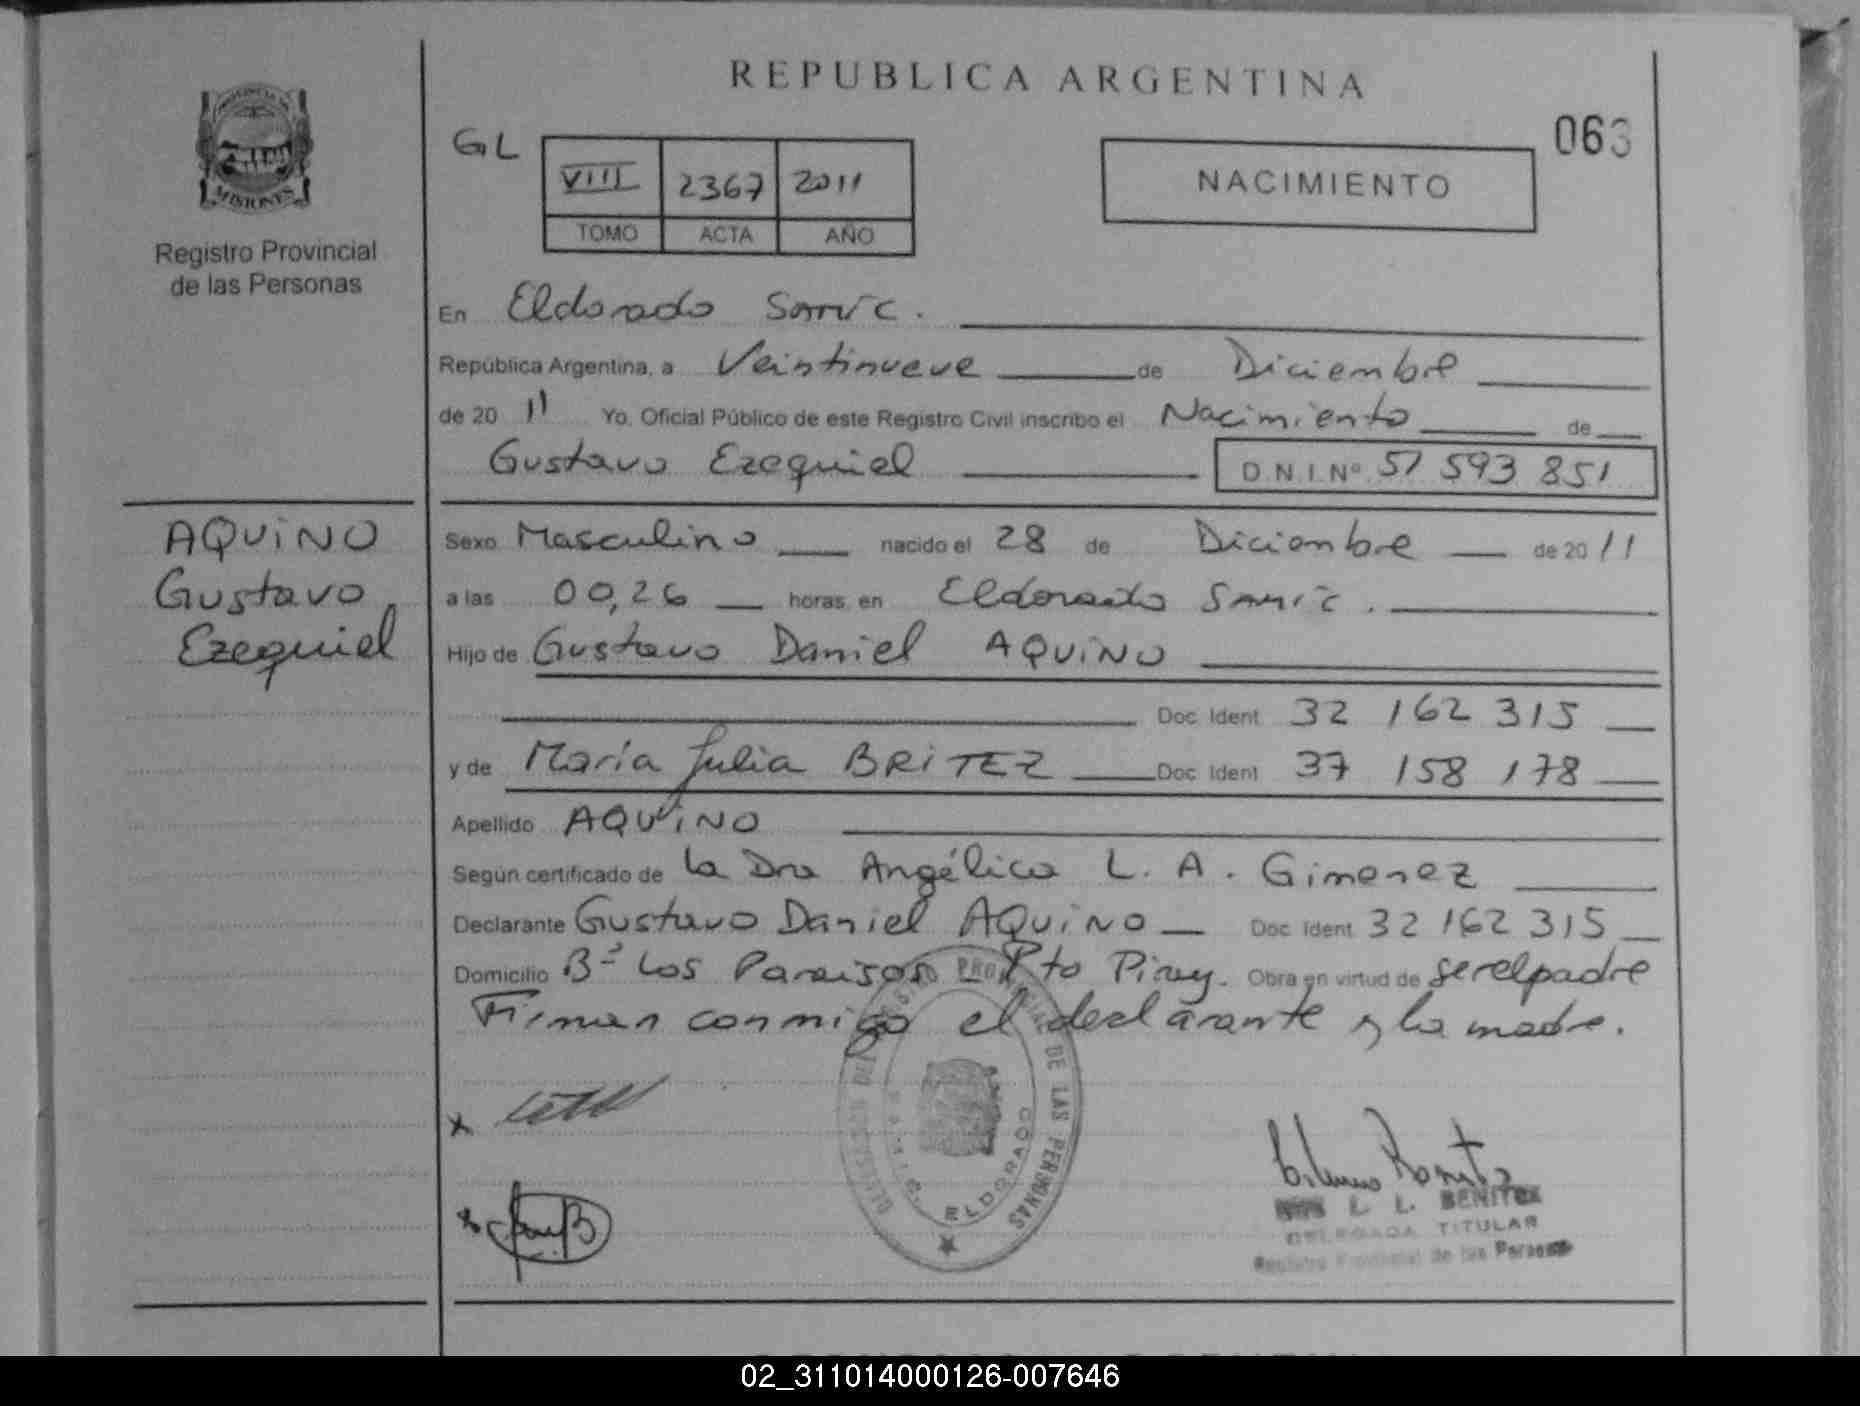 REPUBLICA ARGENTINA
063
PROVINCIA DE
MISIONES
Registro Provincial
de las Personas
GL
VIII 2367 2011
TOMO ACTA AÑO
NACIMIENTO
En Eldorado Samic.
República Argentina, a Veintinueve de Diciembre
de 20 11 Yo, Oficial Público de este Registro Civil inscribo el Nacimiento de
Gustavo Ezequiel D.N.I.Nº 51 593 851
AQUiNO
Gustavo
Ezequiel
Sexo Masculino nacido el 28 de Diciembre de 20 11
a las 00,26 horas, en Eldorado Samic.
Hijo de Gustavo Daniel AQUiNO
Doc. Ident. 32 162 315
y de María Julia BRiTEZ Doc. Ident. 37 158 178
Apellido AQUiNO
Según certificado de la Dra Angélica L. A. Gimenez
Declarante Gustavo Daniel AQUiNO Doc. Ident. 32 162 315
Domicilio Bº Los Paraisos Pto Piray. Obra en virtud de ser el padre
Firman conmigo el declarante y la madre.
x
x
DE LAS PERSONAS
ELDORADO
L. L. BENITEZ
DELEGADA TITULAR
Registro Provincial de las Personas
02_311014000126-007646